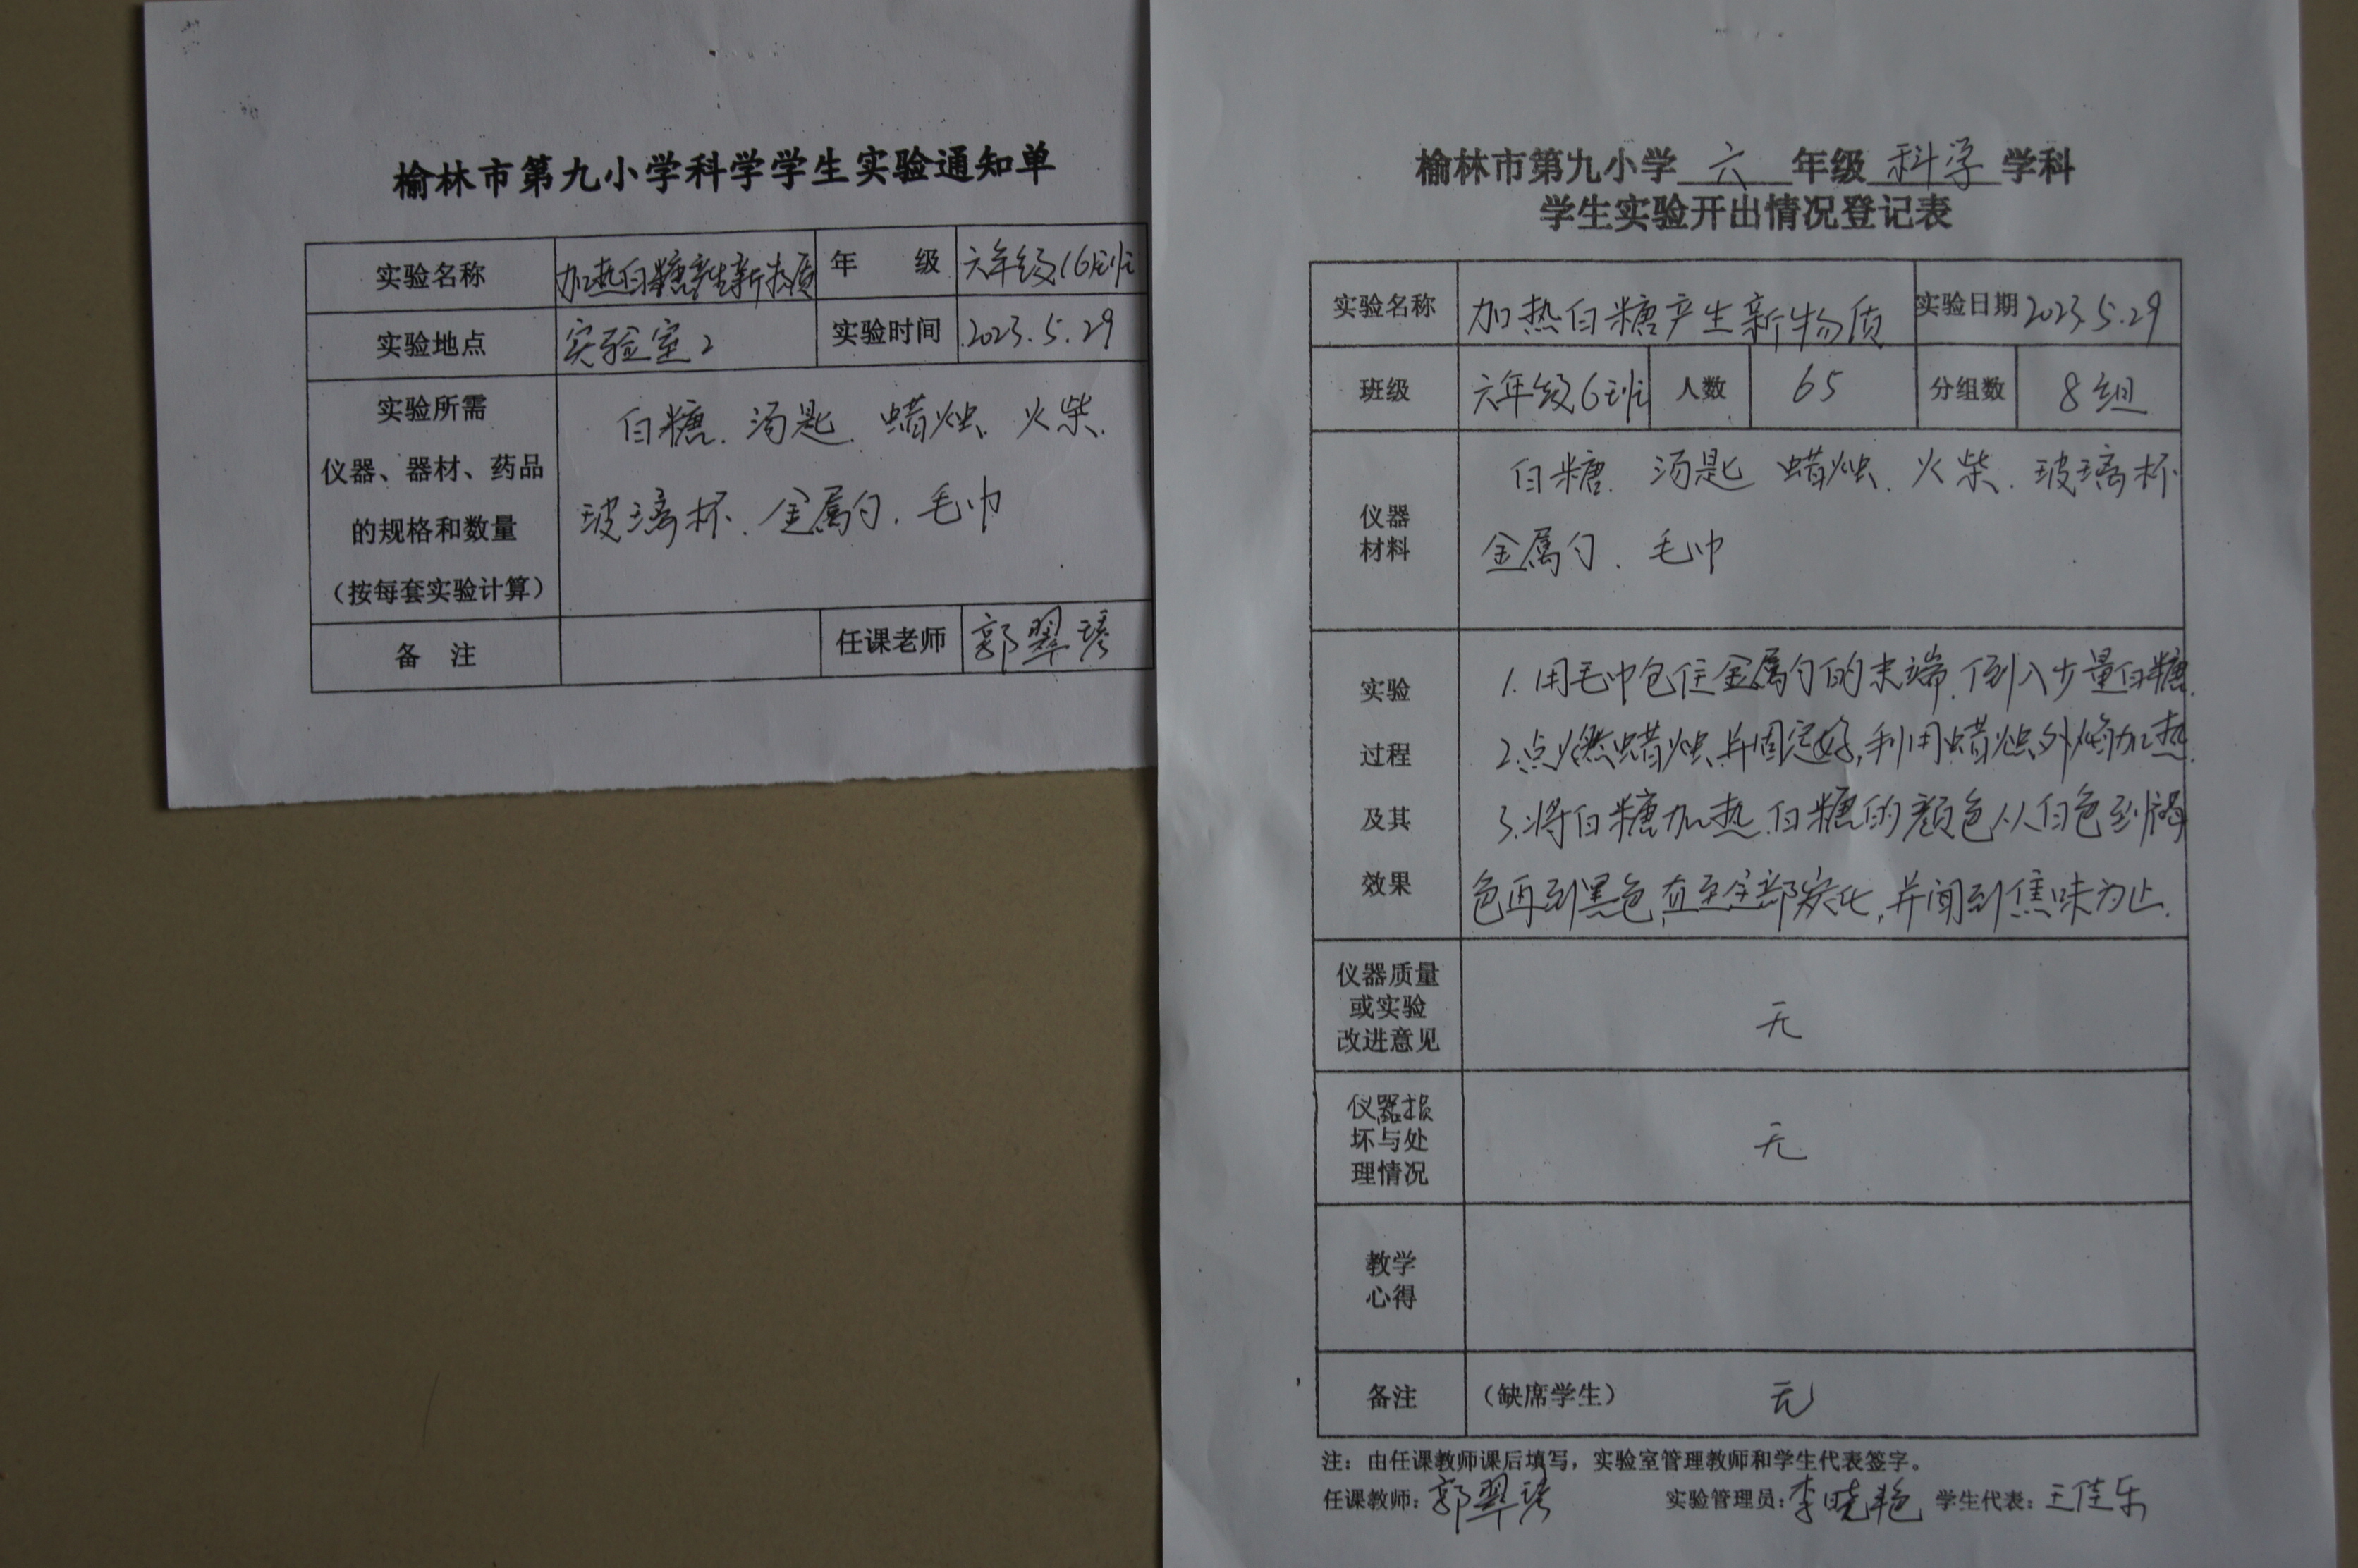 榆林市第九小学科学学生实验通知单
实验名称 加热白糖产生新物质 年 级 六年级(6)班
实验地点 实验室2 实验时间 2023.5.29
实验所需
仪器、器材、药品
的规格和数量
(按每套实验计算)
白糖、汤匙、蜡烛、火柴、
玻璃杯、金属勺、毛巾
备 注 任课老师 郭翠
榆林市第九小学 六 年级 科学 学科
学生实验开出情况登记表
实验名称 加热白糖产生新物质 实验日期 2023.5.29
班级 六年级6班 人数 65 分组数 8组
仪器
材料
白糖、汤匙 蜡烛、火柴、玻璃杯
金属勺、毛巾
实验
过程
及其
效果
1.用毛巾包住金属勺的末端,倒入少量白糖.
2.点燃蜡烛,并固定好,利用蜡烛外焰加热.
3.将白糖加热,白糖的颜色从白色到褐
色再到黑色,直至全部炭化,并闻到焦味为止.
仪器质量
或实验
改进意见
无
仪器损
坏与处
理情况
无
教学
心得
备注 (缺席学生) 无
注:由任课教师课后填写,实验室管理教师和学生代表签字。
任课教师:郭翠 实验管理员:李晓艳 学生代表:王佳乐